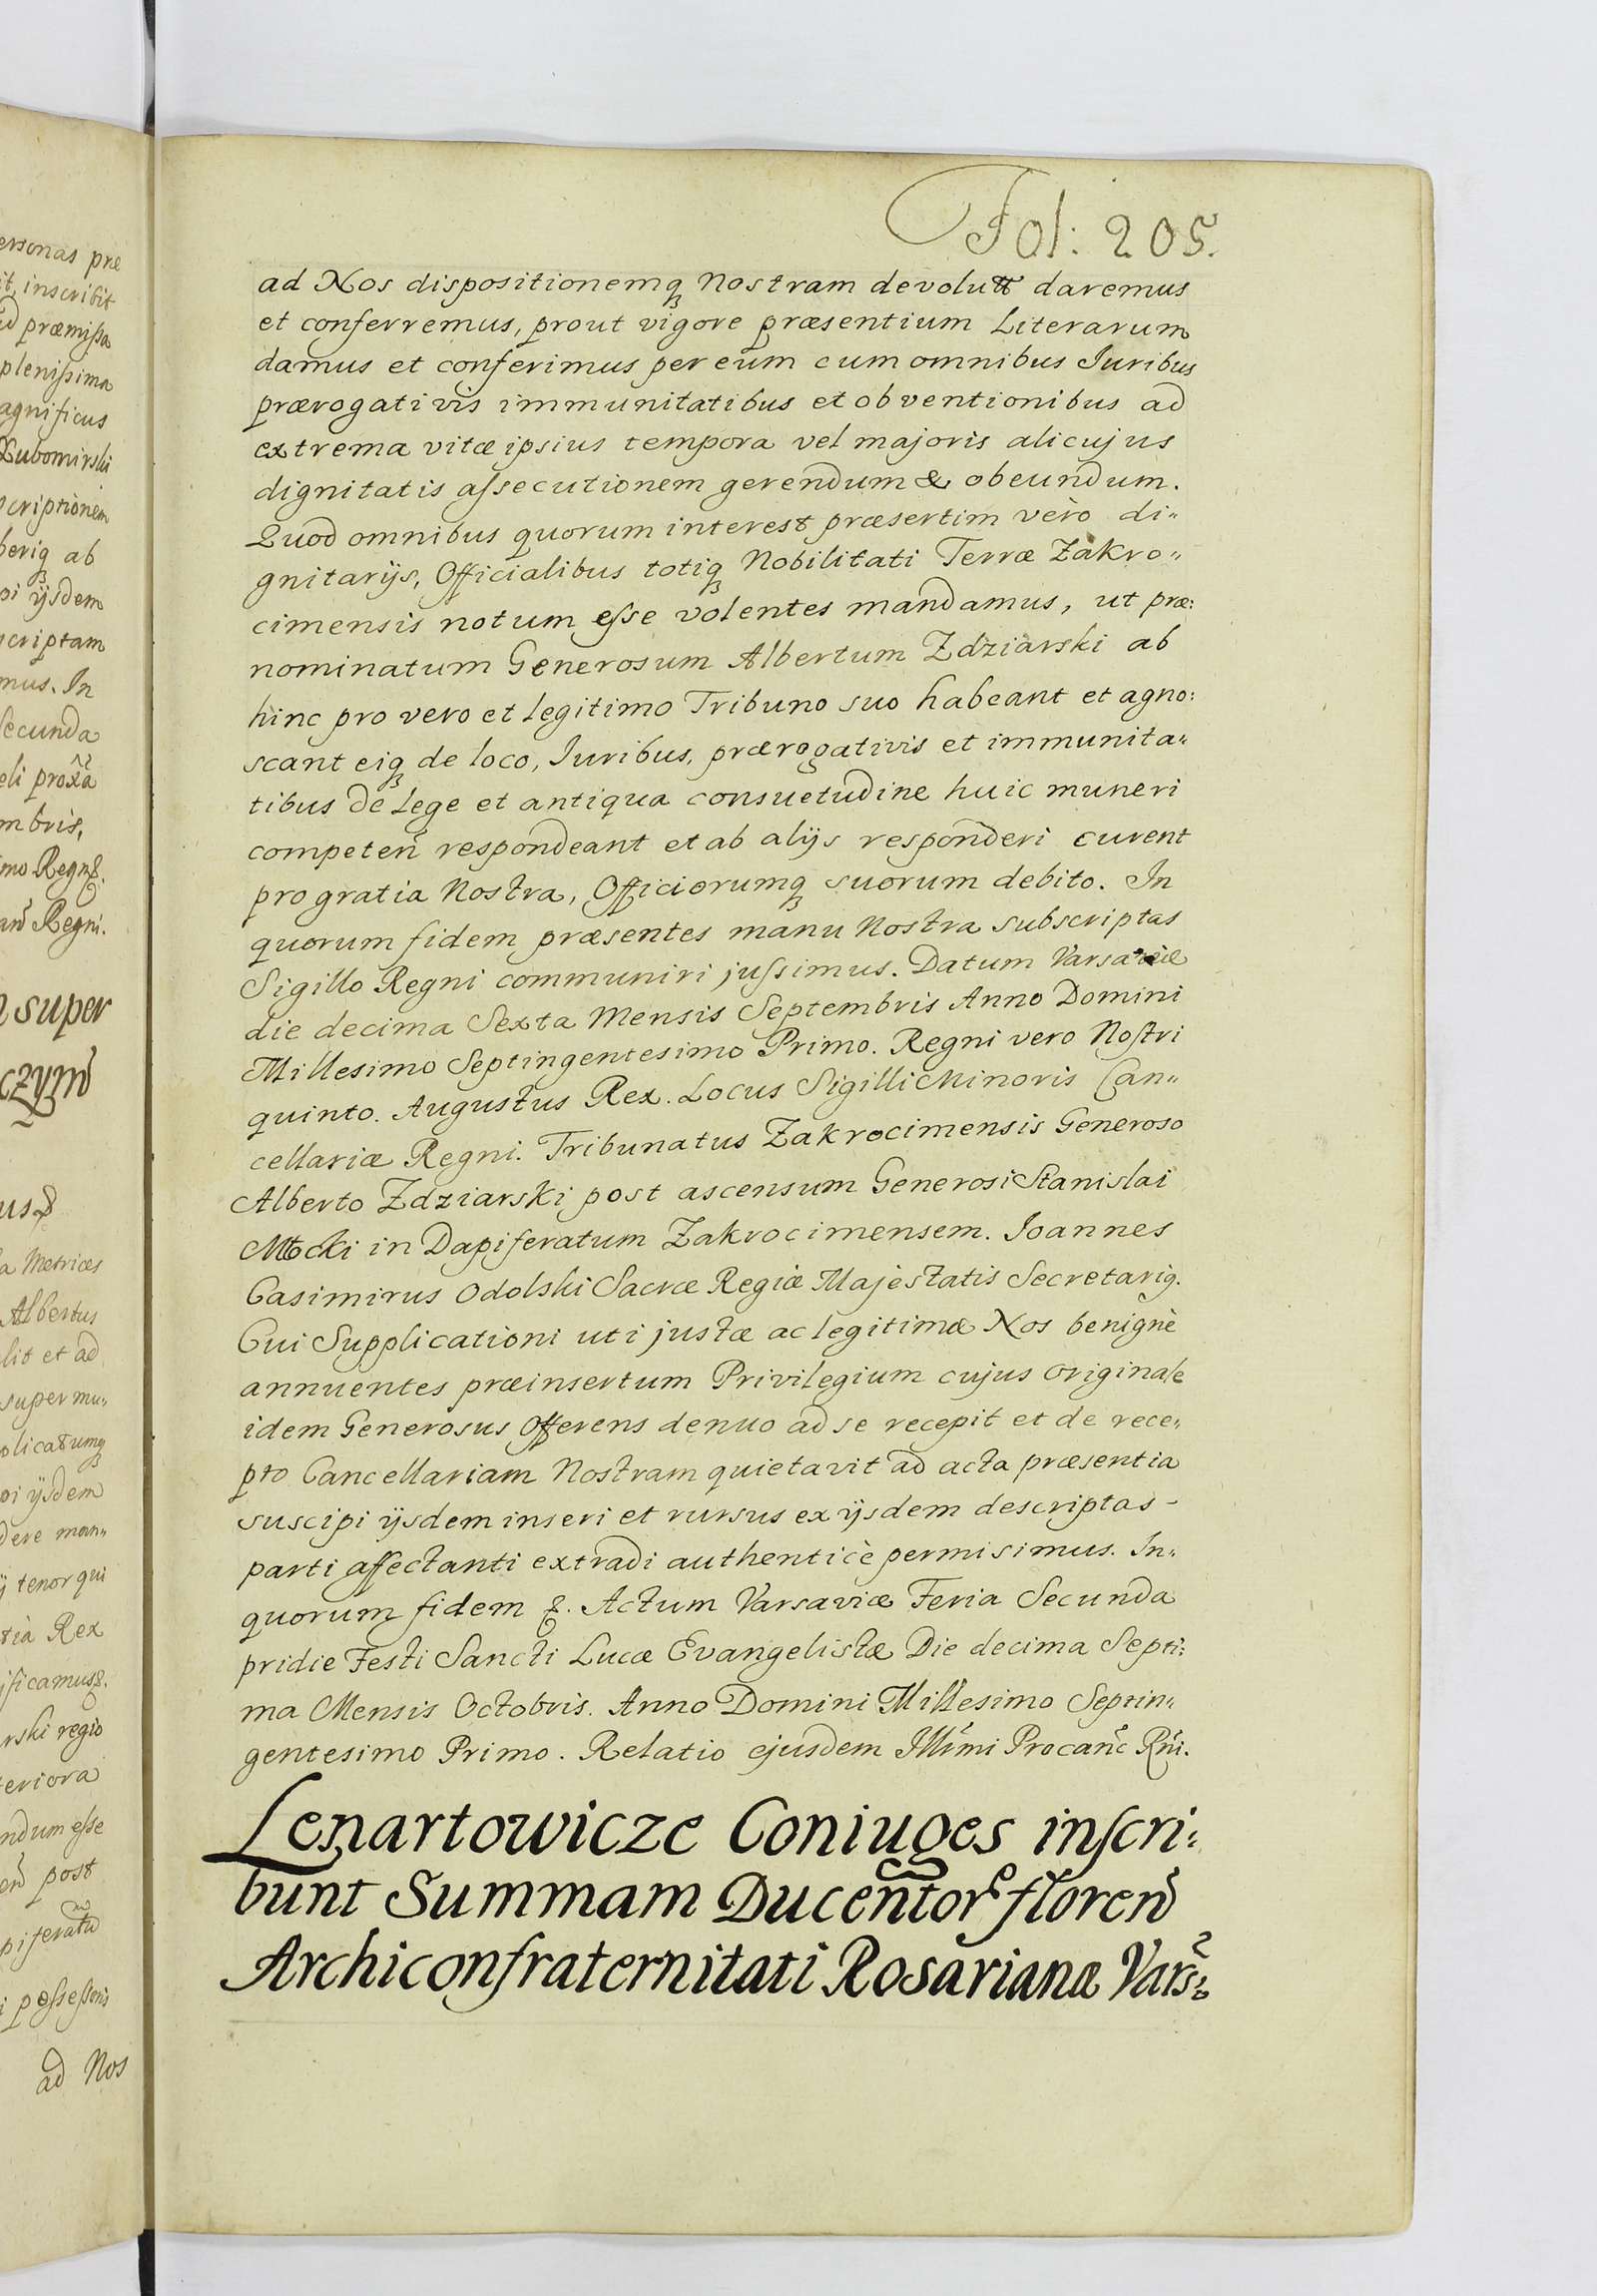 Fol: 205.
ad Nos dispositionemq3 Nostram devolutt daremus
et conferremus, prout vigore præsentium Literarum
damus et conferimus per eum cum omnibus Iuribus
prærogativis immunitatibus et obventionibus ad
extrema vitæ ipsius tempora vel majoris alicujus
dignitatis aſsecutionem gerendum & obeundum.
Quod omnibus quorum interest præsertim verò di„
gnitarijs, Officialibus totiq3 Nobilitati Terræ Zakro„
cimensis notum eſse volentes mandamus, ut præ:
nominatum Generosum Albertum Zdziarski ab
hinc pro vero et legitimo Tribuno suo habeant et agno:
scant eiq3 de loco, Iuribus, prærogativis et immunita„
tibus de Lege et antiqua consuetudine huic muneri
competeñ respondeant et ab alijs responderi curent
pro gratia Nostra, Officiorumq3 suorum debito. In
quorum fidem præsentes manu Nostra subscriptas
Sigillo Regni communiri juſsimus. Datum Varsaviæ
die decima Sexta Mensis Septembris Anno Domini
Millesimo Septingentesimo Primo. Regni vero Noſtri
quinto. Augustus Rex. Locus Sigilli Minoris Can„
cellariæ Regni. Tribunatus Zakrocimensis Generoso
Alberto Zdziarski post ascensum Generosi Stanislai
Młocki in Dapiferatum Zakrocimensem. Ioannes
Casimirus Odolski Sacræ Regiæ Majestatis Secretariq.
Cui Supplicationi uti justæ ac legitimæ Nos benignè
annuentes præinsertum Privilegium cujus originale
idem Generosus Offerens denuo ad se recepit et de rece„
pto Cancellariam Nostram quietavit ad acta præsentia
suscipi ijsdem inseri et rursus ex ijsdem descriptas -
parti affectanti extradi authenticè permisimus. In„
quorum fidem &. Actum Varsaviæ Feria Secunda
pridie Festi Sancti Lucæ Evangelistæ Die decima Septi:
ma Mensis Octobris. Anno Domini Millesimo Septin„
gentesimo Primo. Relatio ejusdem Illmi Procanc Rni.
Lenartowicze Coniuges inſcri:
bunt Summam Ducentor floren
Archiconfraternitati Rosarianæ Vars: